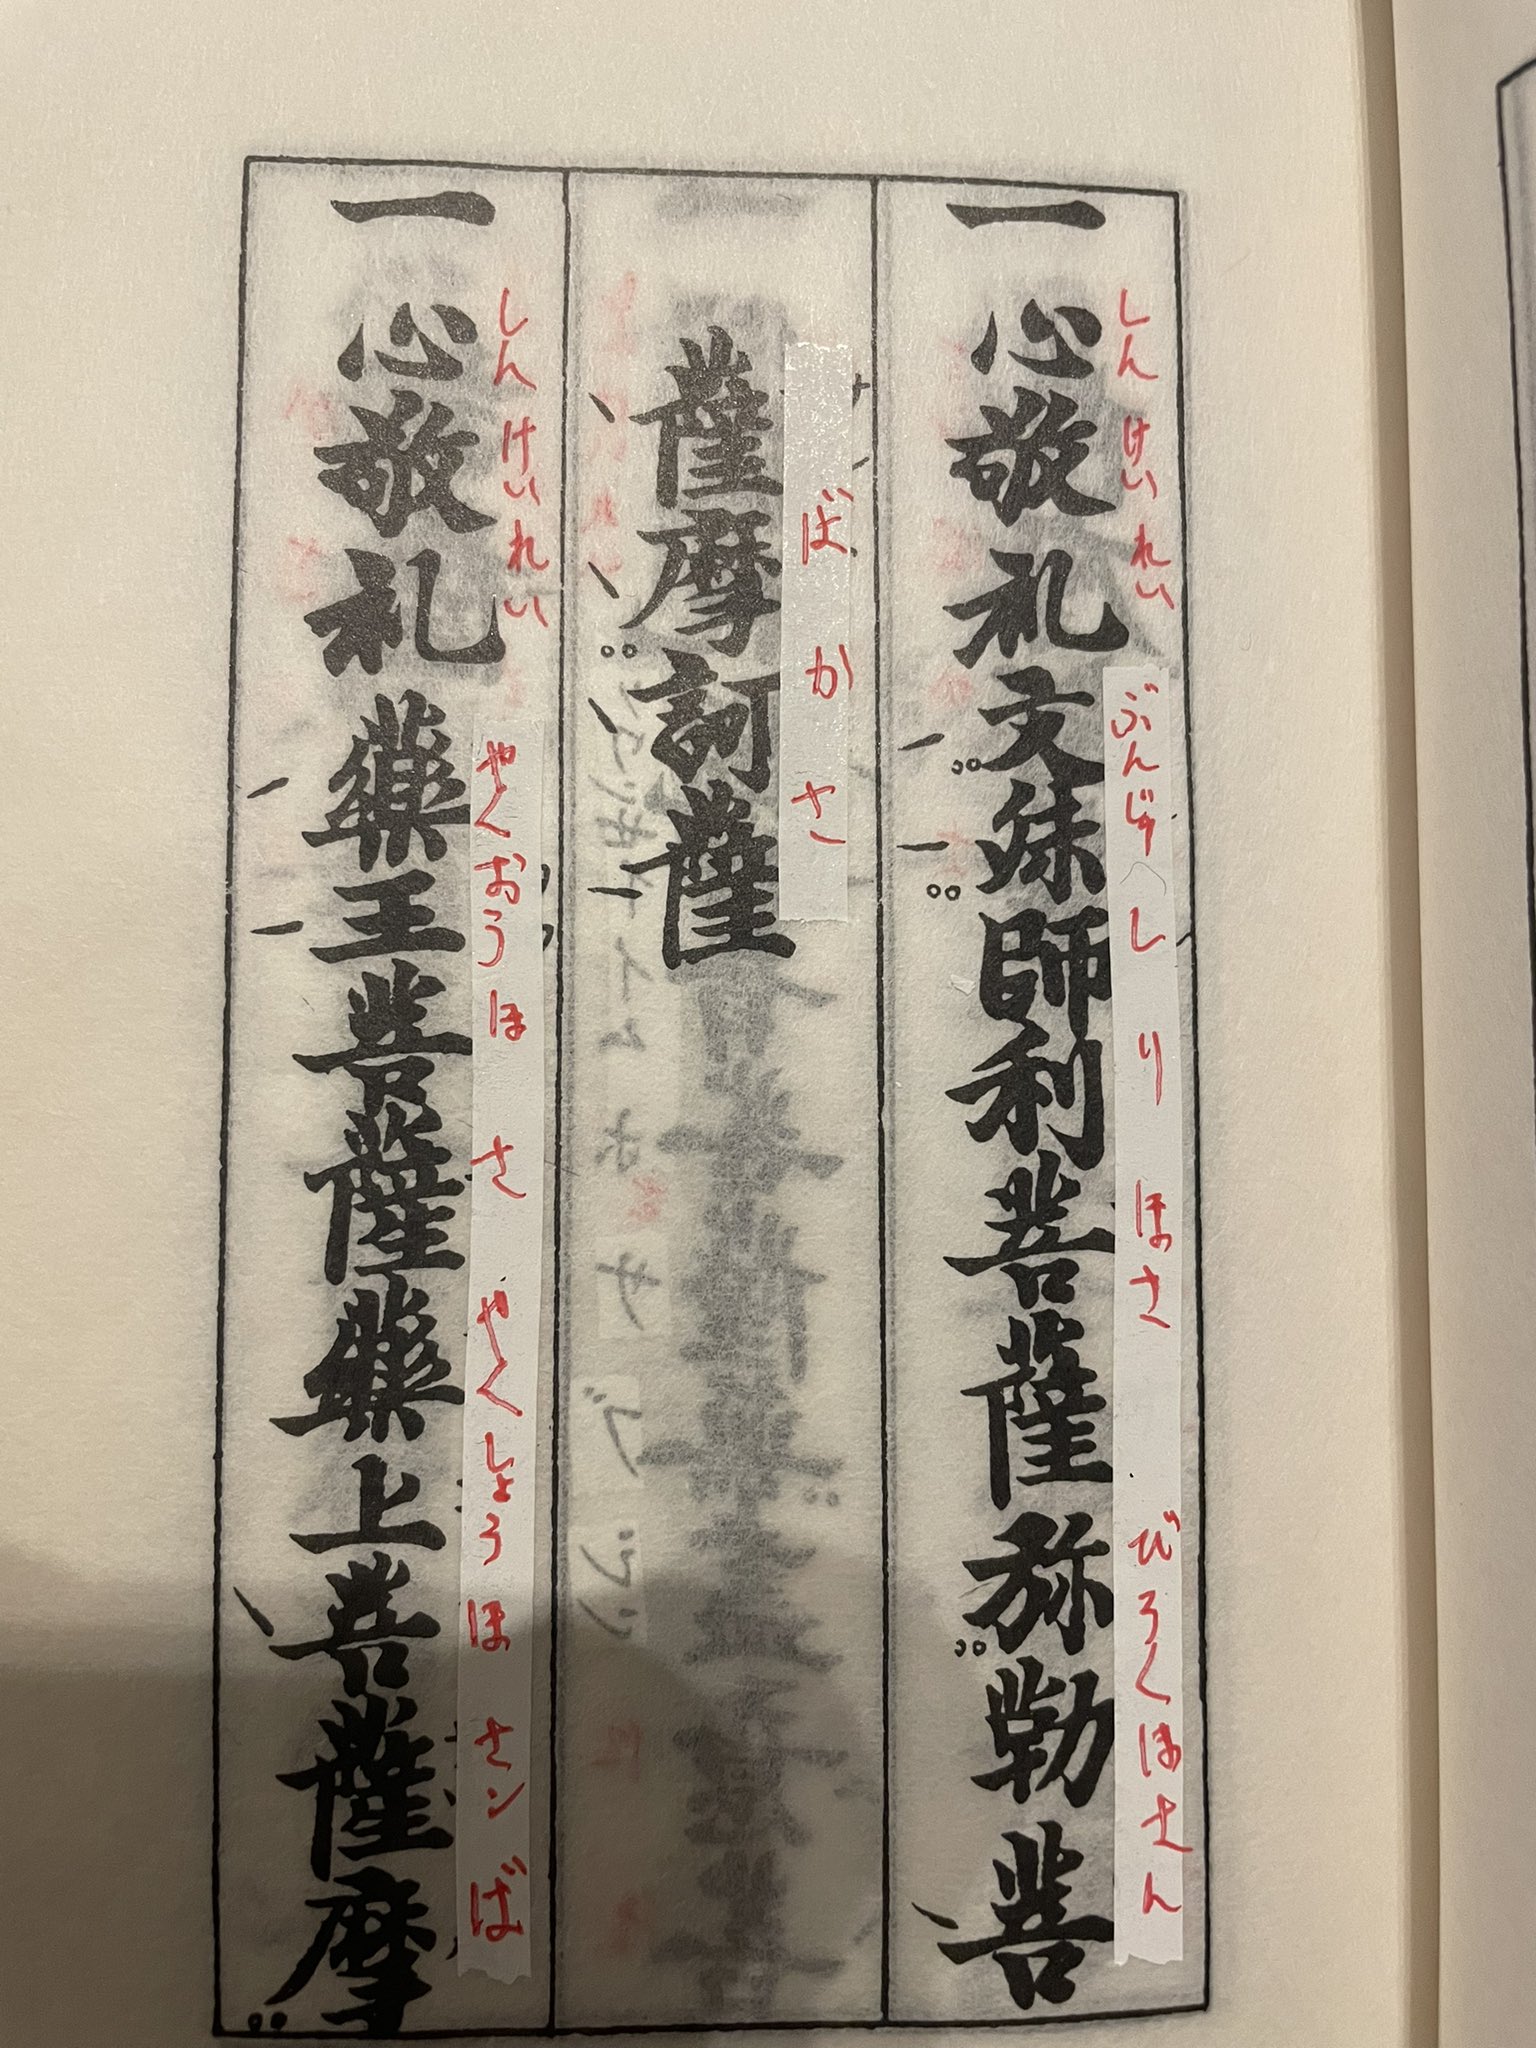 一心敬礼文殊師利菩薩弥勒菩
しんけいれい
ぶんじゅしりほさ びろくほさん
薩摩訶薩
ばかさ
一心敬礼薬王菩薩薬上菩薩摩
しんけいれい
やくおうほさ やくしょうほさンば